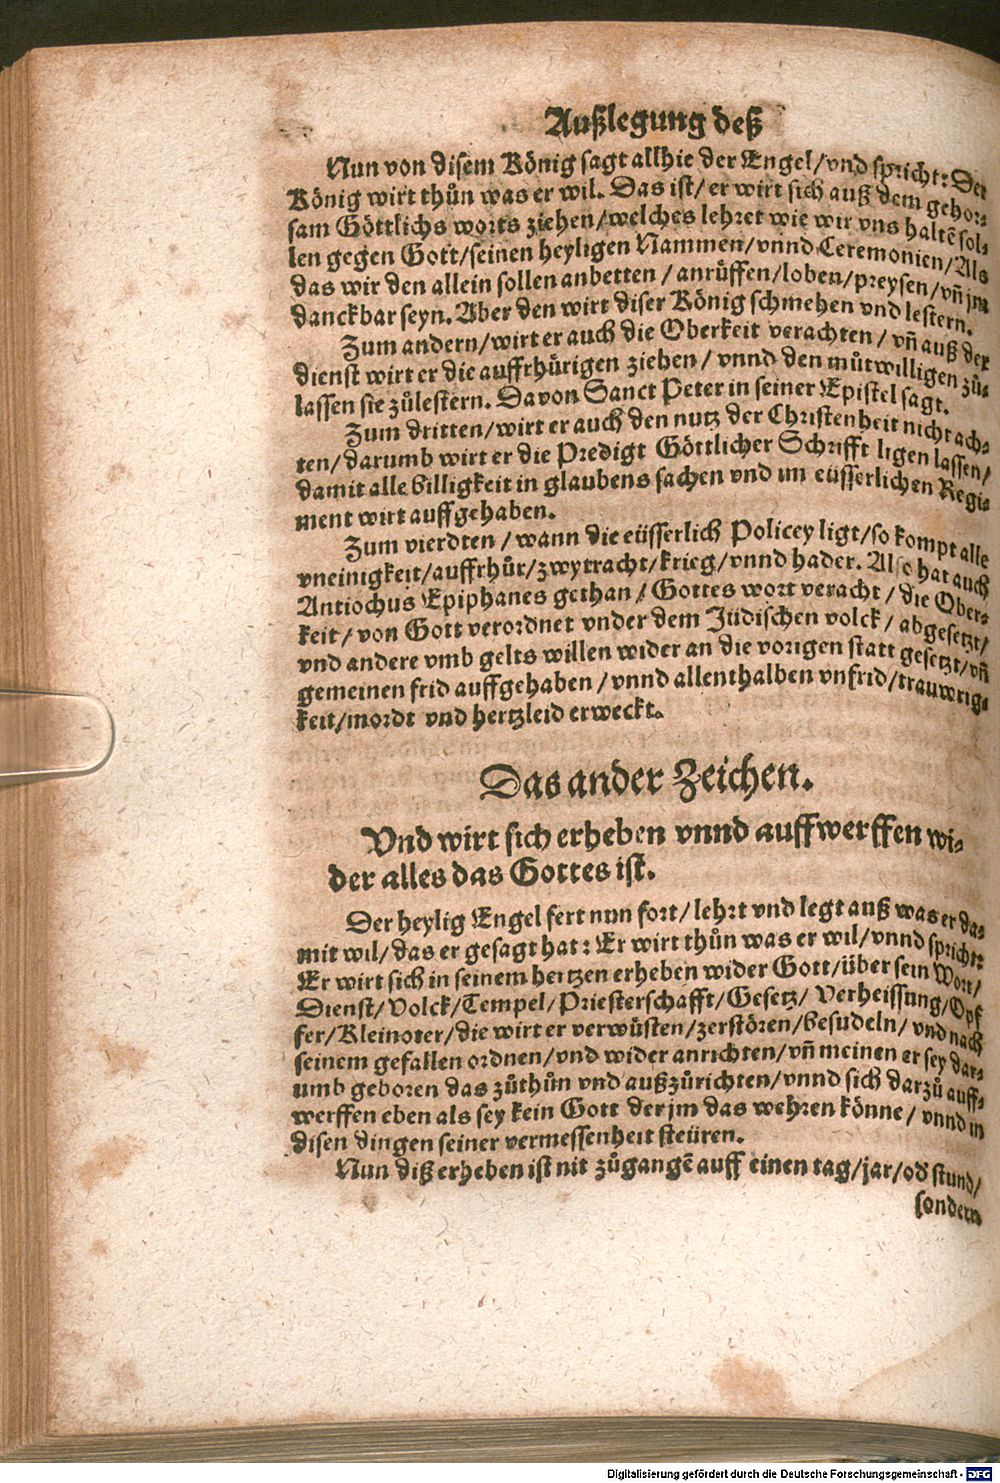 Außlegung deß
Nun von disem König sagt allhie der Engel/vnd spricht: Der
König wirt thůn was er wil. Das ist/er wirt sich auß dem gehor-
sam Göttlichs worts ziehen/welches lehret wie wir vns haltē sol-
len gegen Gott/seinen heyligen Nammen/vnnd Ceremonien/Als
das wir den allein sollen anbetten/anrüffen/loben/preysen/vñ jm
danckbar seyn. Aber den wirt diser König schmehen vnd lestern.
Zum andern/wirt er auch die Oberkeit verachten/vñ auß der
dienst wirt er die auffrhürigen ziehen/vnnd den můtwilligen zů-
lassen sie zůlestern. Davon Sanct Peter in seiner Epistel sagt.
Zum dritten/wirt er auch den nutz der Christenheit nicht ach-
ten/darumb wirt er die Predigt Göttlicher Schrifft ligen lassen/
damit alle billigkeit in glaubens sachen vnd im eüsserlichen Regi-
ment wirt auffgehaben.
Zum vierdten/wann die eüsserlich Policey ligt/so kompt alle
vneinigkeit/auffrhůr/zwytracht/krieg/vnnd hader. Also hat auch
Antiochus Epiphanes gethan/Gottes wort veracht/die Ober-
keit/von Gott verordnet vnder dem Jüdischen volck/abgesetzt/
vnd andere vmb gelts willen wider an die vorigen statt gesetzt/vñ
gemeinen frid auffgehaben/vnnd allenthalben vnfrid/trauwrig-
keit/mordt vnd hertzleid erweckt.
Das ander Zeichen.
Vnd wirt sich erheben vnnd auffwerffen wi-
der alles das Gottes ist.
Der heylig Engel fert nun fort/lehrt vnd legt auß was er da-
mit wil/das er gesagt hat: Er wirt thůn was er wil/vnnd spricht:
Er wirt sich in seinem hertzen erheben wider Gott/über sein Wort/
Dienst/Volck/Tempel/Priesterschafft/Gesetz/Verheissung/Opf
fer/Kleinoter/die wirt er verwüsten/zerstören/besudeln/vnd nach
seinem gefallen ordnen/vnd wider anrichten/vñ meinen er sey dar-
umb geboren das zůthůn vnd außzůrichten/vnnd sich darzů auff-
werffen eben als sey kein Gott der jm das wehren könne/vnnd in
disen dingen seiner vermessenheit steüren.
Nun diß erheben ist nit zůgangē auff einen tag/jar/od stund/
sondern
Digitalisierung gefördert durch die Deutsche Forschungsgemeinschaft - DFG